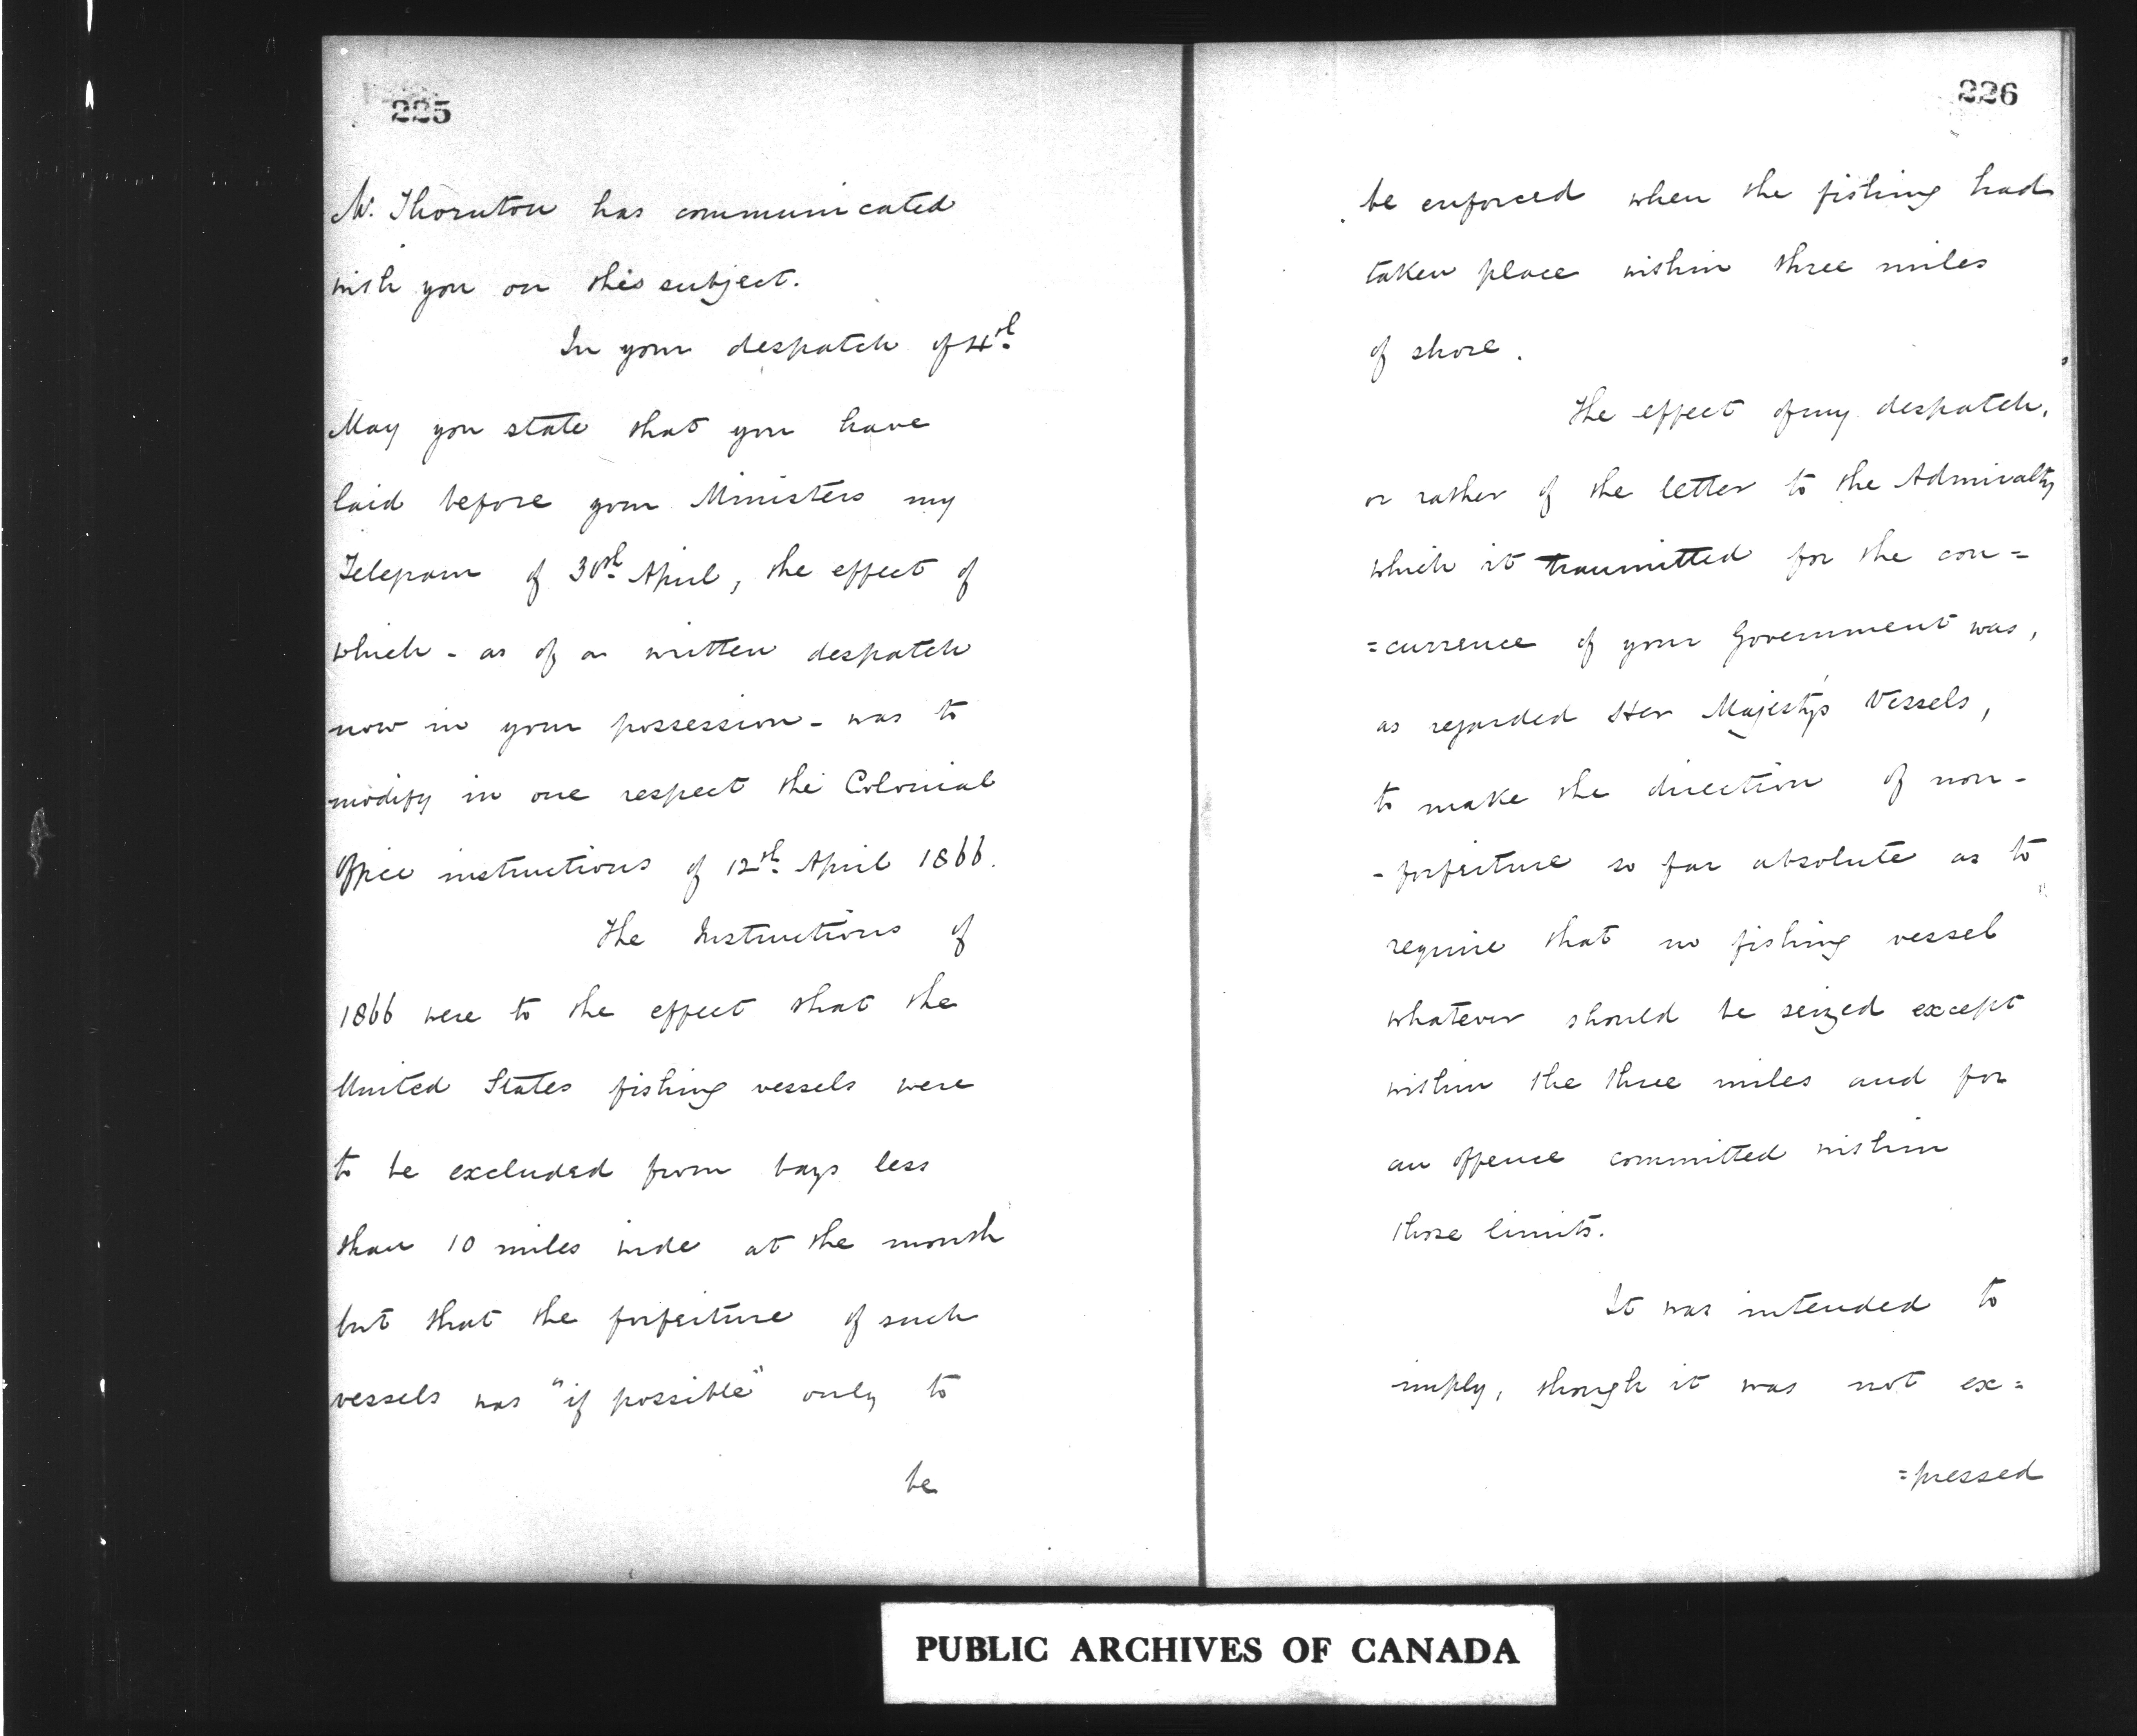 225
Mr. Thornton has communicated
with you on this subject.
In your despatch of 4th
May you state that you have
laid before your Ministers my
Telegram of 30th April, the effect of
which - as of a written despatch
now in your possession - was to
modify in one respect the Colonial
Office instructions of 12th April 1866.
The Instructions of
1866 were to the effect that the
United States fishing vessels were
to be excluded from bays less
than 10 miles wide at the mouth
but that the forfeiture of such
vessels was "if possible" only to
be
226
be enforced when the fishing had
taken place within three miles
of shore.
The effect of my despatch,
or rather of the letter to the Admiralty
which it transmitted for the con=
=currence of your Government was,
as regarded Her Majesty's Vessels,
to make the direction of non-
-forfeiture so far absolute as to
require that no fishing vessel
whatever should be seized except
within the three miles and for
an offence committed within
those limits.
It was intended to
imply, though it was not ex=
=pressed
PUBLIC ARCHIVES OF CANADA